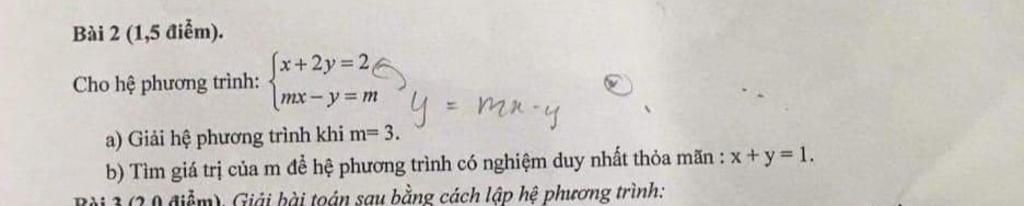 Bài 2 (1,5 điểm).
Cho hệ phương trình: { x + 2y = 2
mx − y = m
y = mx - y
a) Giải hệ phương trình khi m= 3.
b) Tìm giá trị của m để hệ phương trình có nghiệm duy nhất thỏa mãn : x + y = 1.
Bài 3 (2,0 điểm). Giải bài toán sau bằng cách lập hệ phương trình: